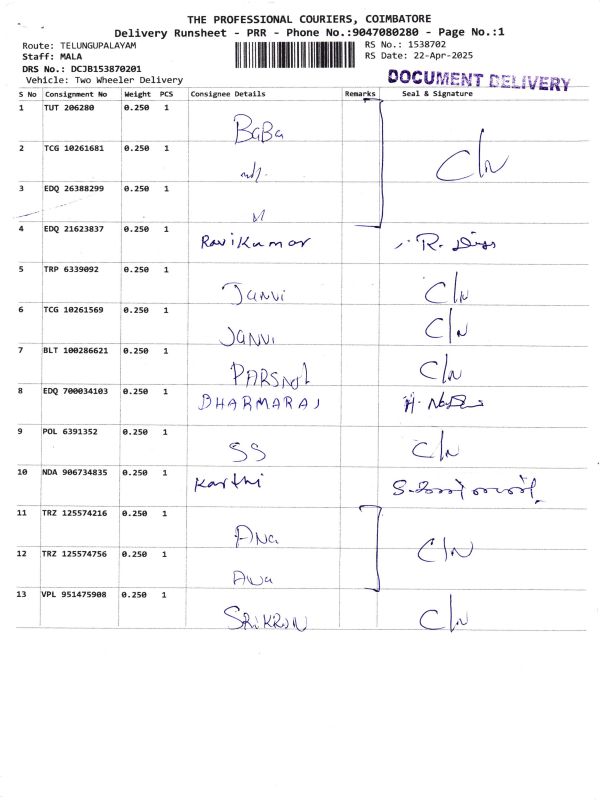 THE PROFESSIONAL COURIERS, COIMBATORE
Delivery Runsheet - PRR - Phone No.:9047080280 - Page No.:1
Route: TELUNGUPALAYAM
Staff: MALA
DRS No.: DCJB153870201
Vehicle: Two Wheeler Delivery
RS No.: 1538702
RS Date: 22-Apr-2025
DOCUMENT DELIVERY
S No Consignment No Weight PCS Consignee Details Remarks Seal & Signature
1 TUT 206280 0.250 1 BaBa
2 TCG 10261681 0.250 1 C/N
3 EDQ 26388299 0.250 1
4 EDQ 21623837 0.250 1 Ravikumar R.
5 TRP 6339092 0.250 1 Janvi C/N
6 TCG 10261569 0.250 1 Janvi C/N
7 BLT 100286621 0.250 1 C/N
8 EDQ 700034103 0.250 1 DHARMARAJ
9 POL 6391352 0.250 1 SS C/N
10 NDA 906734835 0.250 1 Karthi
11 TRZ 125574216 0.250 1 Ana
12 TRZ 125574756 0.250 1 Ana C/N
13 VPL 951475908 0.250 1 C/N